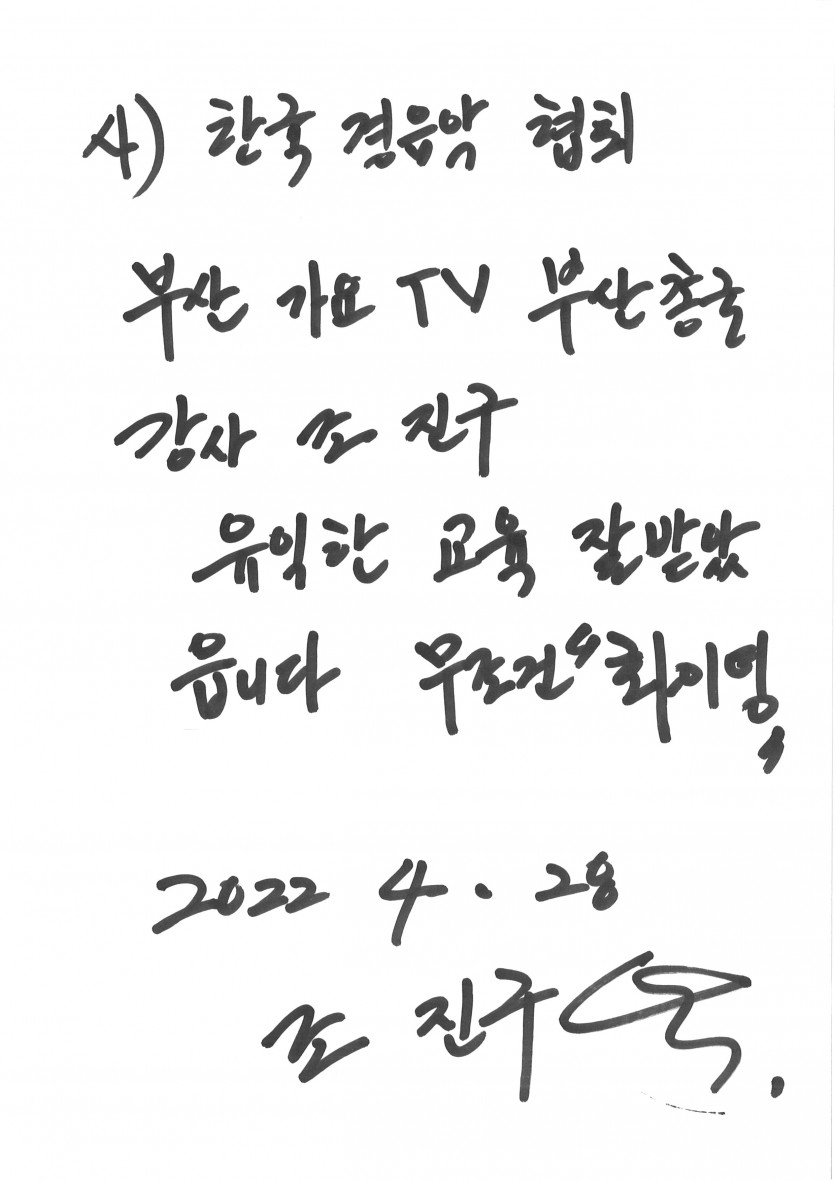 사) 한국 경음악 협회
부산 가요 TV 부산총국
강사 조 진구
유익한 교육 잘받았
읍니다 무조건 "화이영"
2022 4. 28
조 진구